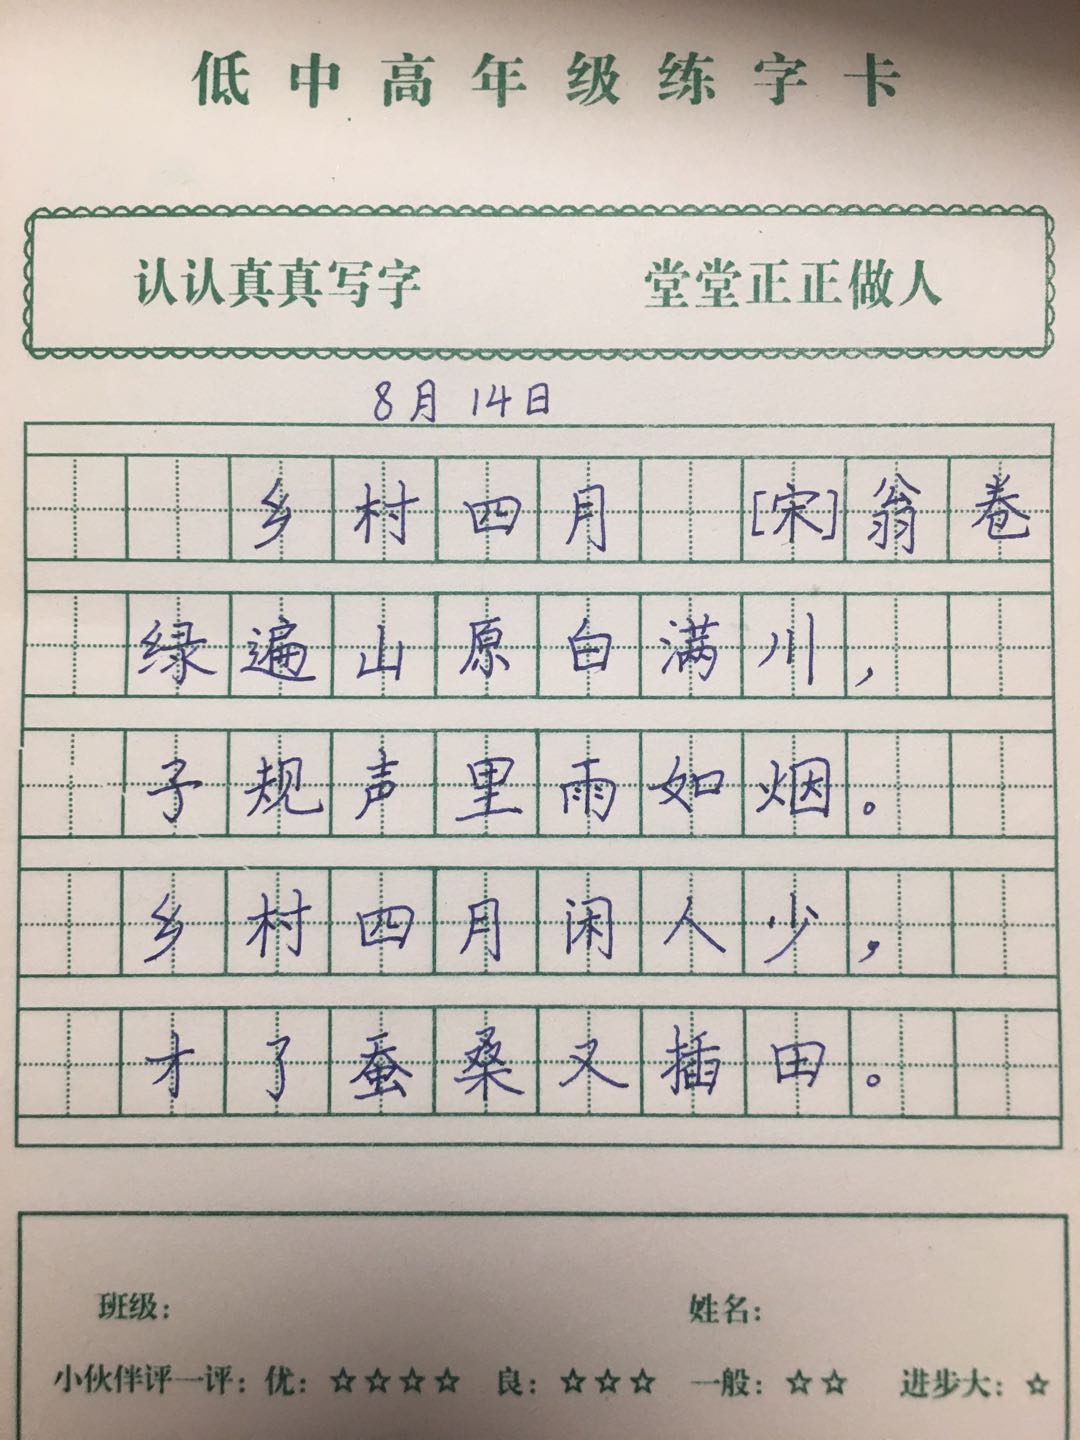 低中高年级练字卡
认认真真写字 堂堂正正做人
8月14日
乡村四月 [宋]翁卷
绿遍山原白满川，
子规声里雨如烟。
乡村四月闲人少，
才了蚕桑又插田。
班级： 姓名：
小伙伴评一评：优：☆☆☆☆ 良：☆☆☆ 一般：☆☆ 进步大：☆